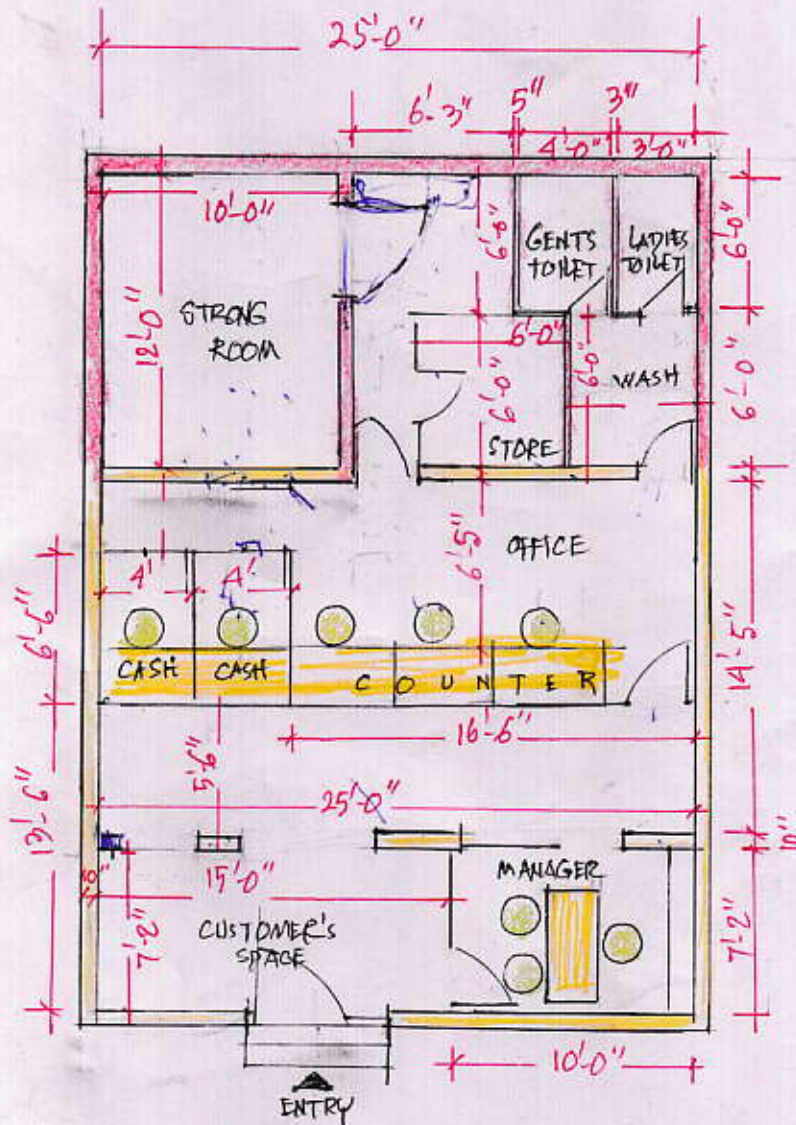 25'-0"
6'-3"
5"
3"
4'-0"
3'-0"
10'-0"
6'-0"
GENTS
TOILET
LADIES
TOILET
6'-0"
STRONG
ROOM
12'-0"
6'-0"
6'-0"
6'-0"
WASH
6'-0"
STORE
OFFICE
6'-5"
4'
4'
6'-6"
CASH
CASH
COUNTER
14'-5"
16'-6"
5'-6"
13'-6"
25'-0"
10"
10"
15'-0"
MANAGER
7'-2"
CUSTOMER'S
SPACE
7'-2"
10'-0"
ENTRY